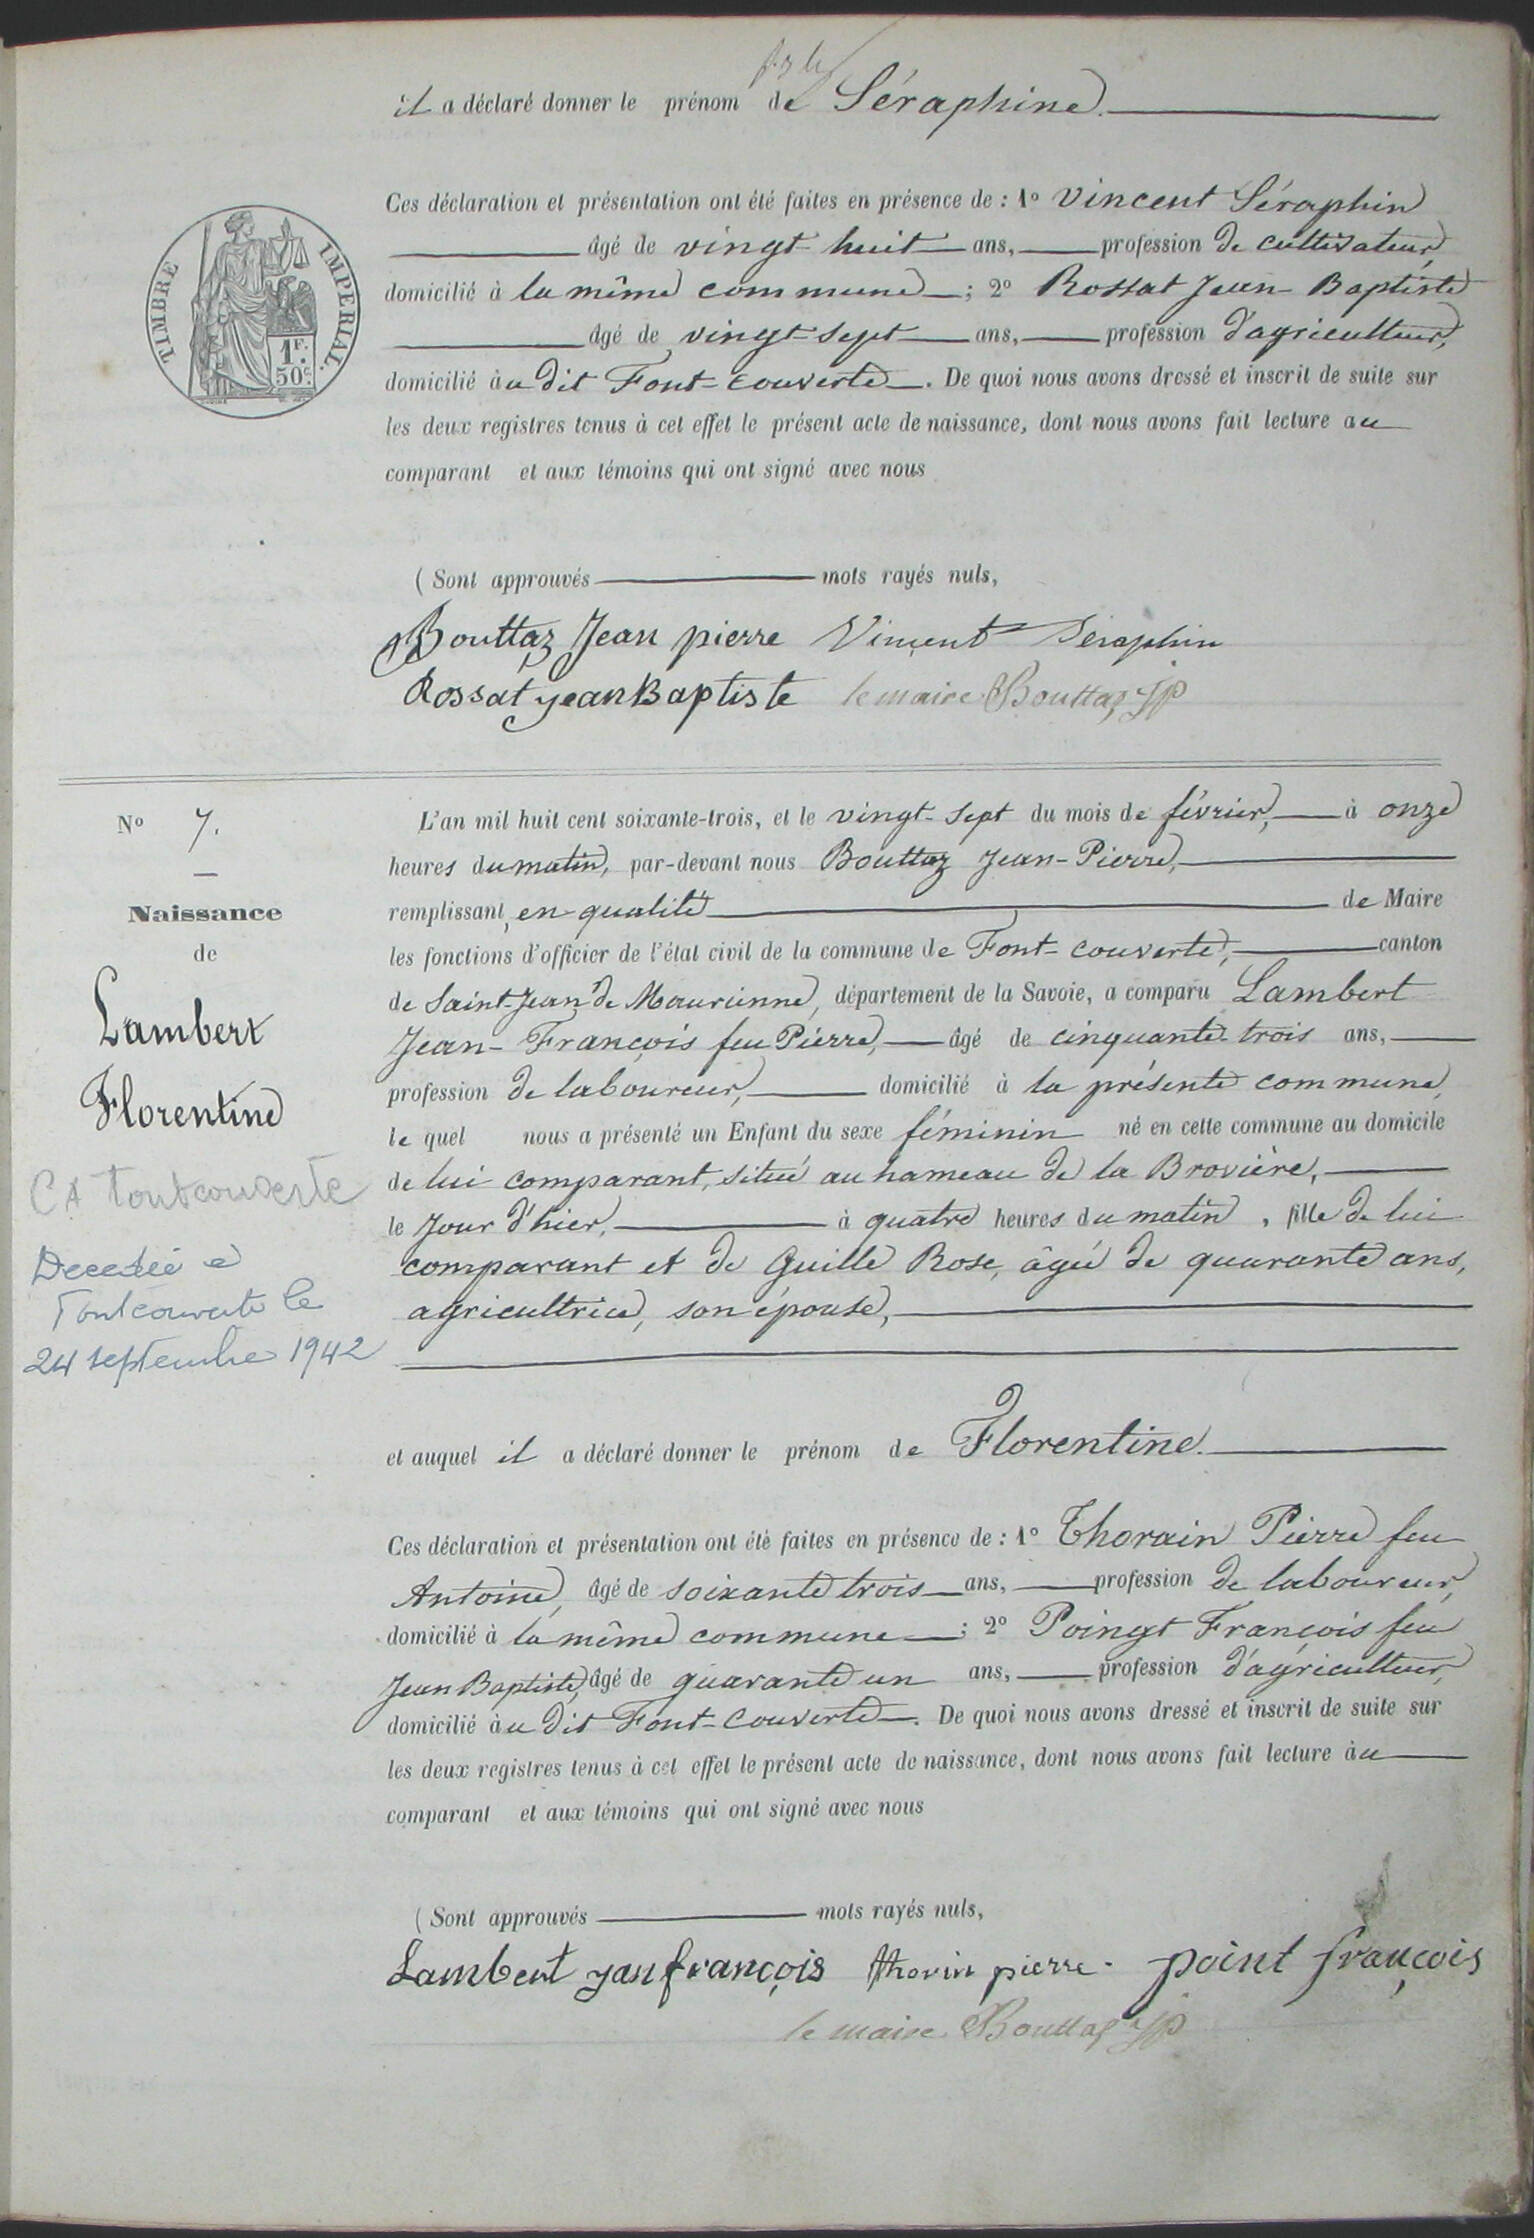 il a déclaré donner le prénom de Séraphine.
Ces déclaration et présentation ont été faites en présence de : 1º Vincent Séraphin
âgé de vingt-huit ans, profession de cultivateur,
domicilié à la même commune ; 2º Rossat Jean-Baptiste
âgé de vingt-sept ans, profession d'agriculteur,
domicilié àu dit Font-couverte. De quoi nous avons dressé et inscrit de suite sur
les deux registres tenus à cet effet le présent acte de naissance, dont nous avons fait lecture au
comparant et aux témoins qui ont signé avec nous
TIMBRE IMPERIAL.
1F.
50c.
(Sont approuvés mots rayés nuls,
Bouttaz Jean pierre Vincent Séraphin
Rossat jean Baptiste le maire Bouttaz JP
Nº 7.
Naissance
de
Lambert
Florentine
CA Fontcouverte
Decedée a
Fontcouverte le
24 septembre 1942
L'an mil huit cent soixante-trois, et le vingt-sept du mois de février, à onze
heures du matin, par-devant nous Bouttaz Jean-Pierre,
remplissant, en qualité de Maire
les fonctions d'officier de l'état civil de la commune de Font-couverte, canton
de Saint-Jean de Maurienne, département de la Savoie, a comparu Lambert
Jean-François feu Pierre, âgé de cinquante-trois ans,
profession de laboureur, domicilié à la présente commune,
le quel nous a présenté un Enfant du sexe féminin né en cette commune au domicile
de lui comparant, situé au hameau de la Brovière,
le jour d'hier, à quatre heures du matin, fille de lui
comparant et de Guille Rose, âgée de quarante ans,
agricultrice, son épouse,
et auquel il a déclaré donner le prénom de Florentine.
Ces déclaration et présentation ont été faites en présence de : 1º Thorain Pierre feu
Antoine, âgé de soixante trois ans, profession de laboureur,
domicilié à la même commune ; 2º Poingt François feu
Jean Baptiste, âgé de quarante un ans, profession d'agriculteur,
domicilié àu dit Font-Couverte. De quoi nous avons dressé et inscrit de suite sur
les deux registres tenus à cet effet le présent acte de naissance, dont nous avons fait lecture àu
comparant et aux témoins qui ont signé avec nous
(Sont approuvés mots rayés nuls,
Lambert jan françois thorin pierre. point françois
le maire Bouttaz JP